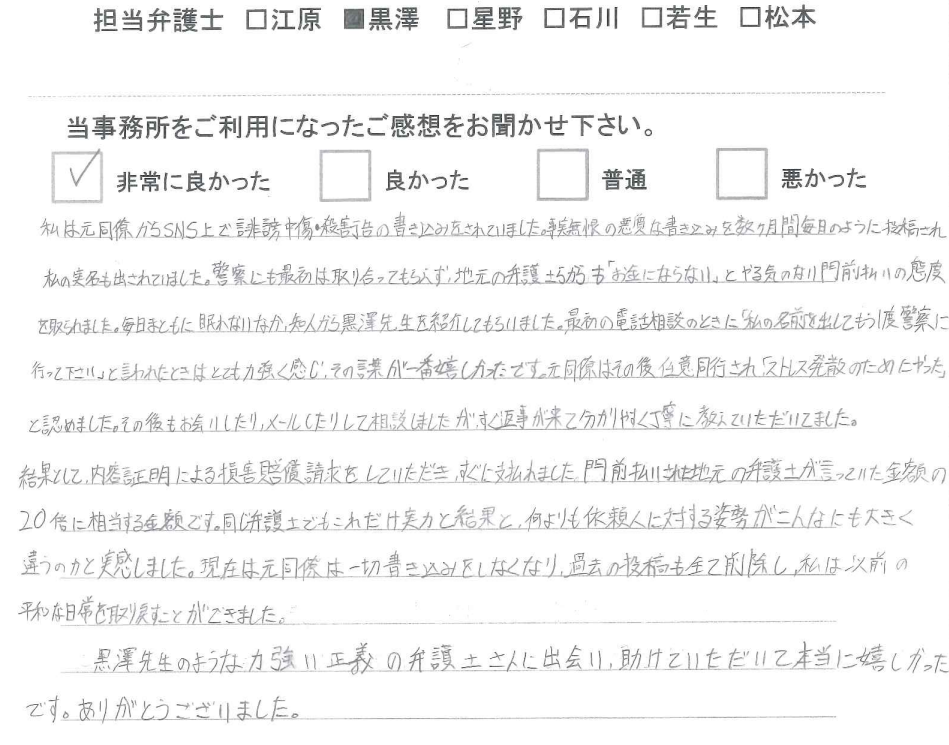 担当弁護士 □江原 ■黒澤 □星野 □石川 □若生 □松本
当事務所をご利用になったご感想をお聞かせ下さい。
☑ 非常に良かった □ 良かった □ 普通 □ 悪かった
私は元同僚からSNS上で誹謗中傷・殺害予告の書き込みをされていました。事実無根の悪質な書き込みを数ヶ月間毎日のように投稿され
私の実名も出されていました。警察にも最初は取り合ってもらえず、地元の弁護士らからも「お金にならない」とやる気のない門前払いの態度
を取られました。毎日まともに眠れないなか、知人から黒澤先生を紹介してもらいました。最初の電話相談のときに「私の名前を出してもう1度警察に
行って下さい」と言われたときはとても力強く感じ、その言葉が一番嬉しかったです。元同僚はその後任意同行され「ストレス発散のためにやった」
と認めました。その後もお会いしたり、メールしたりして相談しましたが、すぐ返事が来て分かりやすく丁寧に教えていただいてました。
結果として、内容証明による損害賠償請求をしていただき、すぐに支払われました。門前払いされた地元の弁護士が言っていた金額の
20倍に相当する金額です。同じ弁護士でもこれだけ実力と結果と、何よりも依頼人に対する姿勢がこんなにも大きく
違うのかと実感しました。現在は元同僚は一切書き込みをしなくなり、過去の投稿も全て削除し、私は以前の
平和な日常を取り戻すことができました。
黒澤先生のような力強い正義の弁護士さんに出会い、助けていただいて本当に嬉しかった
です。ありがとうございました。